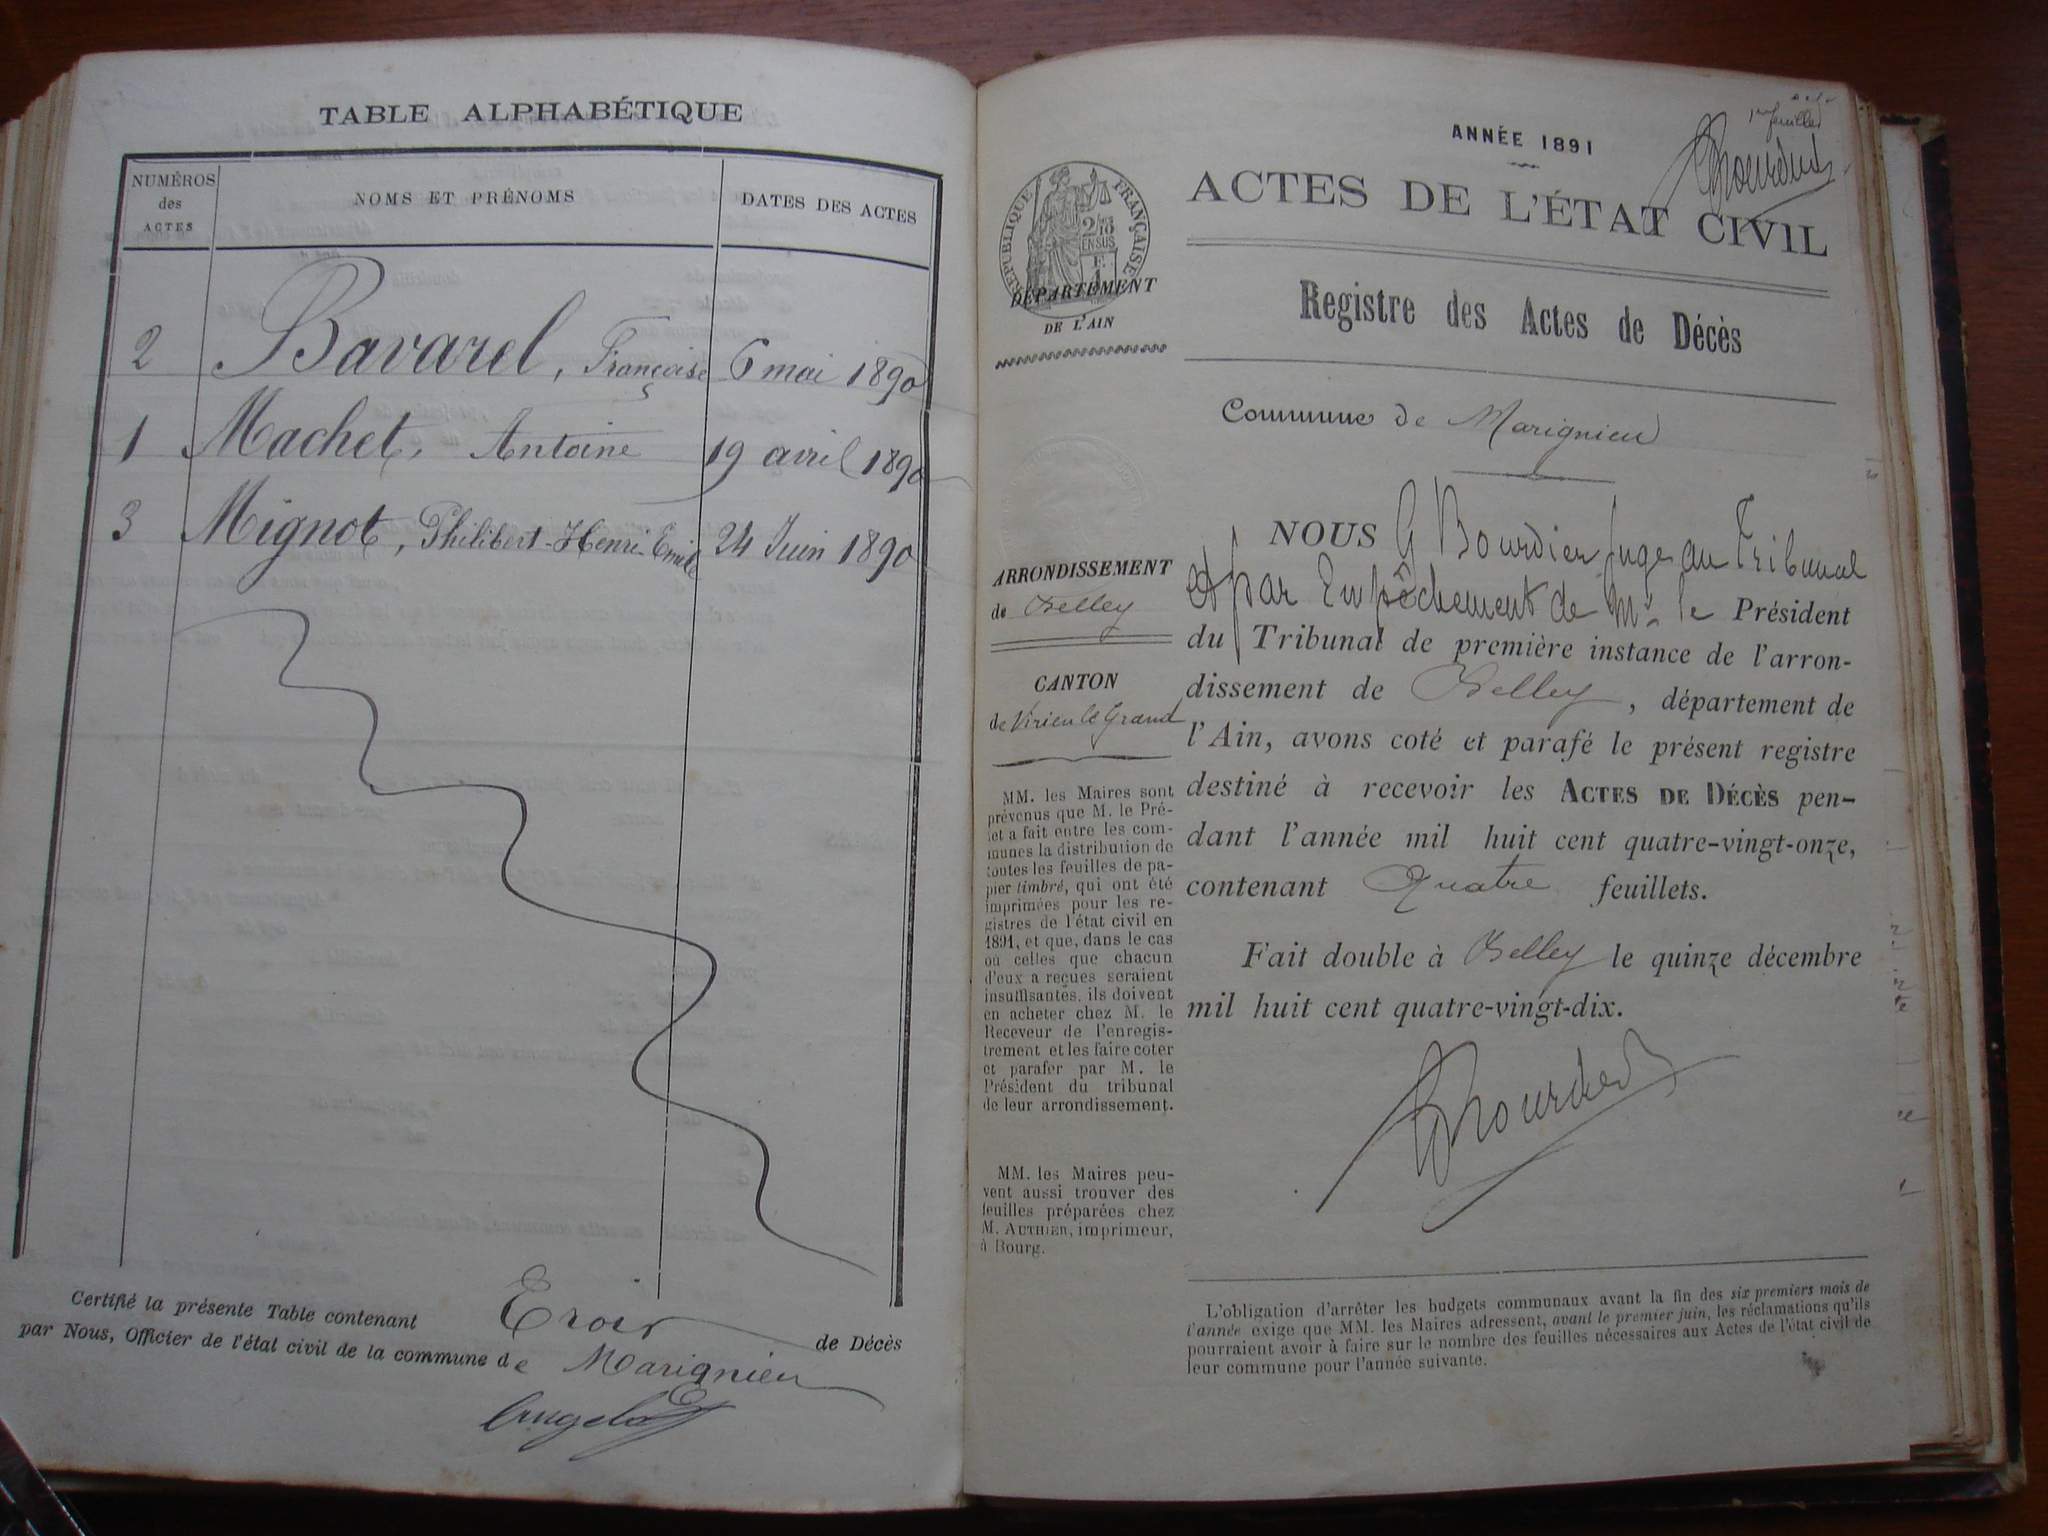 TABLE ALPHABÉTIQUE
NUMÉROS
des
ACTES
NOMS ET PRÉNOMS
DATES DES ACTES
2 Bavarel, Françoise 6 mai 1890
1 Machet, Antoine 19 avril 1890
3 Mignot, Philibert-Henri-Emile 24 Juin 1890
Certifié la présente Table contenant Trois de Décès
par Nous, Officier de l'état civil de la commune de Marignieu
1er feuillet
ANNÉE 1891
ACTES DE L'ÉTAT CIVIL
RÉPUBLIQUE FRANÇAISE
2/10
EN SUS
DÉPARTEMENT
DE L'AIN
Registre des Actes de Décès
Commune de Marignieu
ARRONDISSEMENT
de Belley
CANTON
de Virieu le Grand
MM. les Maires sont
prévenus que M. le Pré-
fet a fait entre les com-
munes la distribution de
toutes les feuilles de pa-
pier timbré, qui ont été
imprimées pour les re-
gistres de l'état civil en
1891, et que, dans le cas
où celles que chacun
d'eux a reçues seraient
insuffisantes, ils doivent
en acheter chez M. le
Receveur de l'enregis-
trement et les faire coter
et parafer par M. le
Président du tribunal
de leur arrondissement.
MM. les Maires peu-
vent aussi trouver des
feuilles préparées chez
M. AUTHIER, imprimeur,
à Bourg.
NOUS G Bourdier Juge au Tribunal
et par Empêchement de Mr le Président
du Tribunal de première instance de l'arron-
dissement de Belley, département de
l'Ain, avons coté et parafé le présent registre
destiné à recevoir les ACTES DE DÉCÈS pen-
dant l'année mil huit cent quatre-vingt-onze,
contenant Quatre feuillets.
Fait double à Belley le quinze décembre
mil huit cent quatre-vingt-dix.
GBourdier
L'obligation d'arrêter les budgets communaux avant la fin des six premiers mois de
l'année exige que MM. les Maires adressent, avant le premier juin, les réclamations qu'ils
pourraient avoir à faire sur le nombre des feuilles nécessaires aux Actes de l'état civil de
leur commune pour l'année suivante.